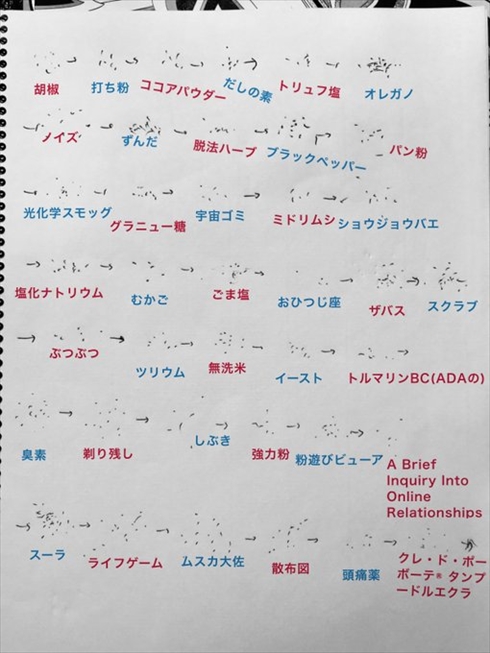 胡椒
打ち粉
ココアパウダー
だしの素
トリュフ塩
オレガノ
ノイズ
ずんだ
脱法ハーブ
ブラックペッパー
パン粉
光化学スモッグ
グラニュー糖
宇宙ゴミ
ミドリムシ
ショウジョウバエ
塩化ナトリウム
むかご
ごま塩
おひつじ座
ザバス
スクラブ
ぶつぶつ
ツリウム
無洗米
イースト
トルマリンBC(ADAの)
臭素
剃り残し
しぶき
強力粉
粉遊びビューア
A Brief
Inquiry Into
Online
Relationships
スーラ
ライフゲーム
ムスカ大佐
散布図
頭痛薬
クレ・ド・ポー
ボーテ® タンプ
ードルエクラ